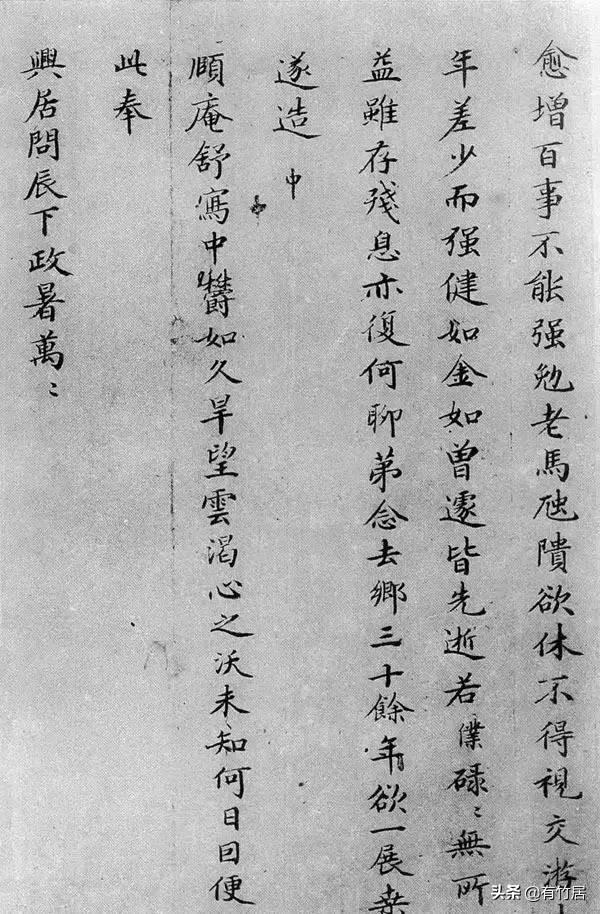 愈增百事不能强勉老馬虺隤欲休不得視交游
年差少而强健如金如曾遽皆先逝若僕碌〻無所
益雖存殘息亦復何聊第念去鄉三十餘年欲一展
遂造中
頤庵舒寫中欝如久旱望雲渴心之沃未知何日因便
此奉
興居問辰下政暑萬〻
头条 @有竹居